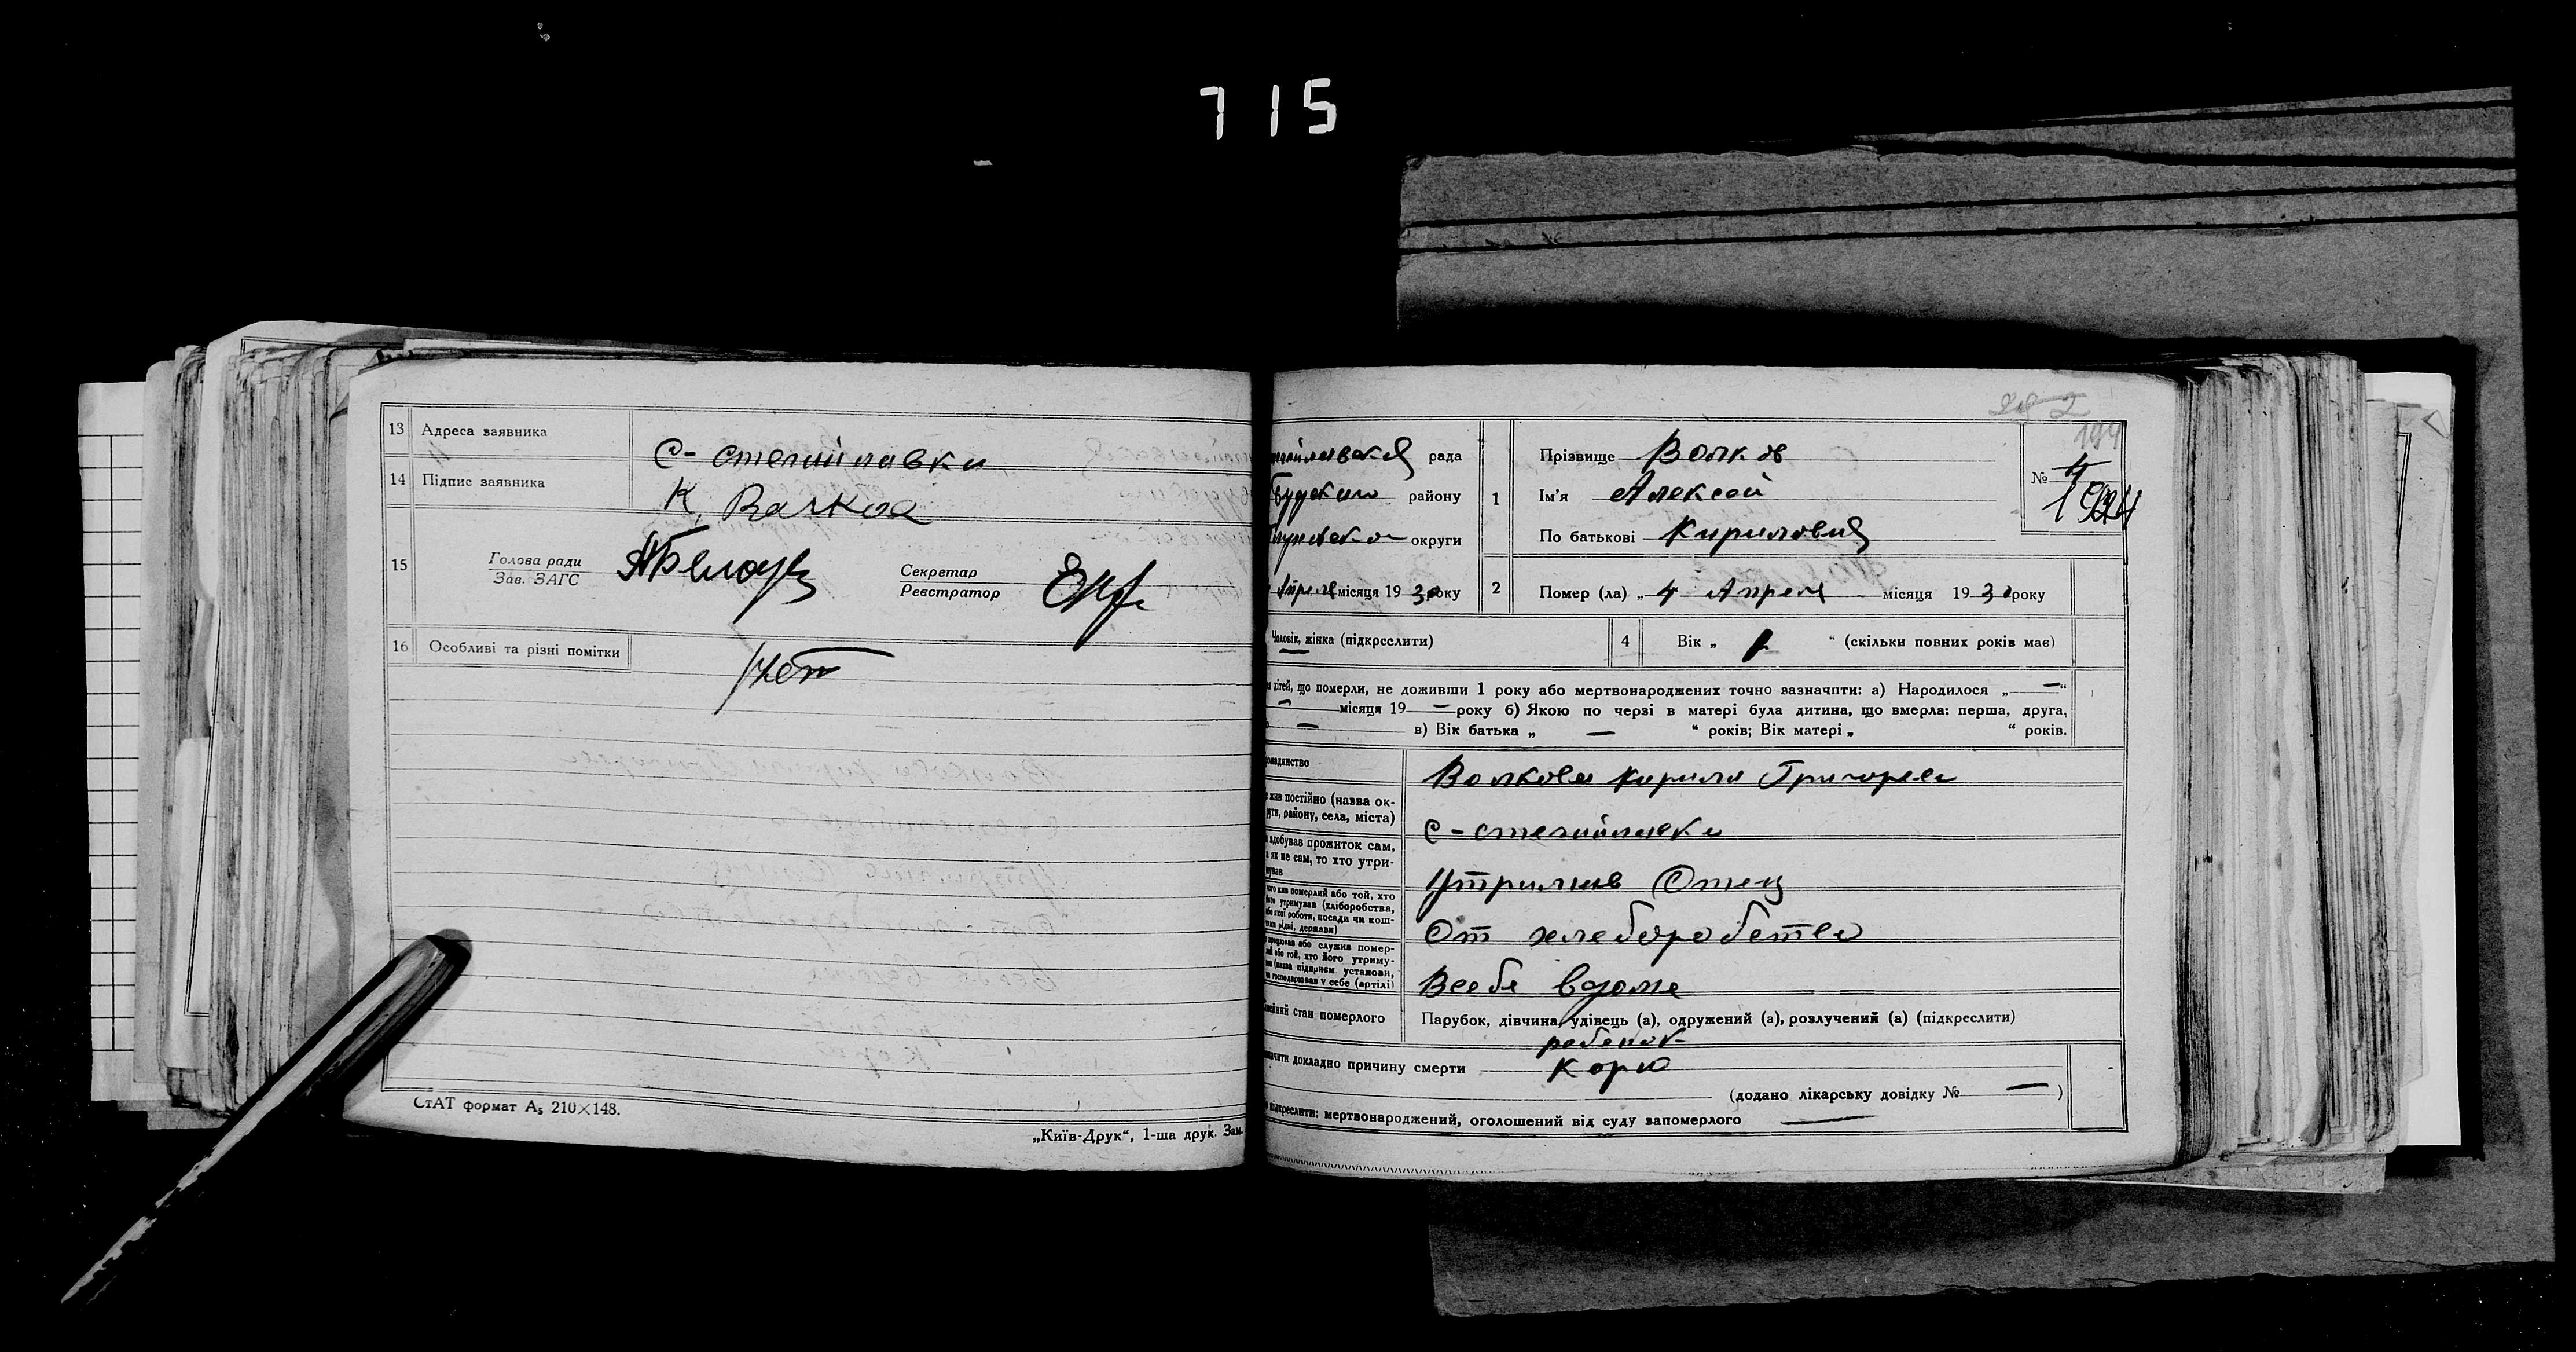 715
13 Адреса заявника
С- стегайловки
14 Підпис заявника
К. Валкоа
15 Голова ради
Зав. ЗАГС
Секретар
Реєстратор
16 Особливі та різні помітки
Нет
СтАТ формат А₅ 210×148.
„Київ-Друк“, 1-ша друк. Зам.
рада
району
округи
Апреля місяця 1930 року
1 Прізвище Волков
Ім'я Алексей
По батькові Кирилович
№ 4
2 Помер (ла) „ 4 Апреля місяця 1930 року
Чоловік, жінка (підкреслити)
4 Вік „ 1 “ (скільки повних років має)
дітей, що померли, не доживши 1 року або мертвонароджених точно зазначити: а) Народилося „ — “
— місяця 19 — року б) Якою по черзі в матері була дитина, що вмерла: перша, друга,
— в) Вік батька „ — “ років; Вік матері „ “ років.
Волкова Кирила Григорев
жив постійно (назва ок-
руги, району, села, міста)
С- стегайловки
здобував прожиток сам,
як не сам, то хто утри-
Утримив Отец
жив померлий або той, хто
його утримував (хліборобства,
роботи, посади чи кош-
рідні, держави)
От хлеборобства
або служив помер-
або той, хто його утриму-
(назва підприєм установи,
господарював у себе (артілі)
Всебе вдоме
стан померлого
Парубок, дівчина, удівець (а), одружений (а), розлучений (а) (підкреслити)
ребенок
докладно причину смерти Корю
(додано лікарську довідку № — )
підкреслити: мертвонароджений, оголошений від суду запомерлого —